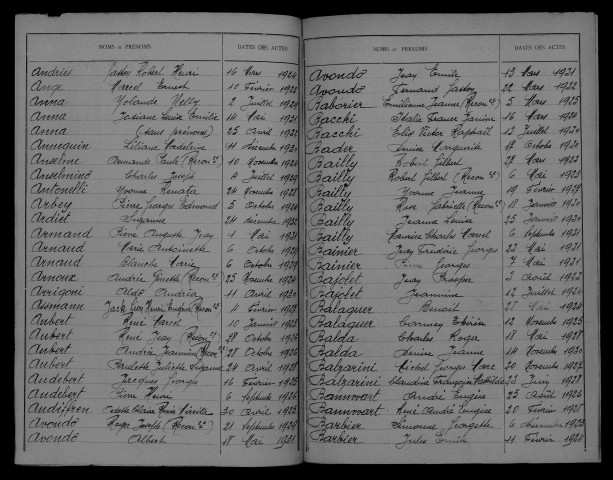 NOMS et PRÉNOMS DATES DES ACTES
Andries Gaston Robert Henri 16 Mars 1924
Ange Marcel Ernest 10 Février 1928
Anna Yolande Nelly 2 Juillet 1929
Anna Josiane Louise Emilie 14 Mai 1931
Anna (sans prénoms) 25 Avril 1932
Annequin Liliane Madeleine 11 Décembre 1930
Anselme Armande Paule (Recon ce) 10 Novembre 1924
Anselmino Charles Joseph 4 Juillet 1929
Antonelli Yvonne Renata 24 Novembre 1928
Arbey Pierre Georges Edmond 5 Octobre
Ardiet Suzanne 24 Décembre
Armand Pierre Auguste Jean 1 Mai 1931
Arnaud Marie Antoinette 6 Octobre 1929
Arnaud Blanche Marie 6 Octobre 1929
Arnoux Andrée Ginette (Recon ce) 25 Novembre 1924
Arrigoni Aldo Andréa 11 Avril 1930
Assmann Jack Henri (Recon ce) 4 Février 1927
Aubert René Marcel 10 Janvier 1925
Aubert René Jean (Recon ce) 28 Octobre 1926
Aubert Andrée Jeannine (Recon ce) 28 Octobre 1926
Aubert Paulette Juliette Suzanne 24 Avril 1928
Audebert Jacques Georges 16 Février 1925
Audebert Pierre Henri 6 Septembre 1926
Audiffren Odette Claire Renée Mireille 30 Avril 1925
Avondo Roger Joseph (Recon ce) 21 Septembre 1929
Avondo Albert 18 Mai 1931
NOMS et PRÉNOMS DATES DES ACTES
Avondo Jean Emile 13 Mars 1931
Avondo Fernand Gaston 22 Mars 1932
Baborier Emilienne Jeanne (Recon ce) 5 Mars 1925
Bacchi Italia France Janine 16 Mars 1924
Bacchi Elio Victor Raphaël 12 Juillet 1930
Bader Denise Marguerite 14 Octobre 1930
Bailly Robert Gilbert 28 Mars 1923
Bailly Robert Gilbert (Recon ce) 6 Mai 1923
Bailly Yvonne Jeanne 19 Février 1928
Bailly Rose Gabrielle (Recon ce) 18 Janvier 1930
Bailly Jeanne Louise 25 Janvier 1930
Bailly Maurice Charles Marcel 6 Septembre 1931
Bainier Jean Frédéric Georges 22 Mai 1931
Bainier Pierre Georges 7 Mai 1931
Bajolet Jean Prosper 3 Août 1922
Bajolet Jeannine 12 Juillet 1924
Balaguer Benoit 27 Mai 1924
Balaguer Carmen Thérèse 12 Novembre 1925
Balda Charles Roger 18 Mai 1928
Balda Denise Jeanne 14 Novembre 1930
Balzarini Michel Georges Marc 20 Novembre 1927
Balzarini Claudine Françoise Mathilde 23 Juin 1928
Bannwart André Eugène 25 Août 1926
Bannwart René André Eugène 20 Février 1928
Barbier Simonne Georgette 6 Décembre 1923
Barbier Jules Emile 11 Février 1924